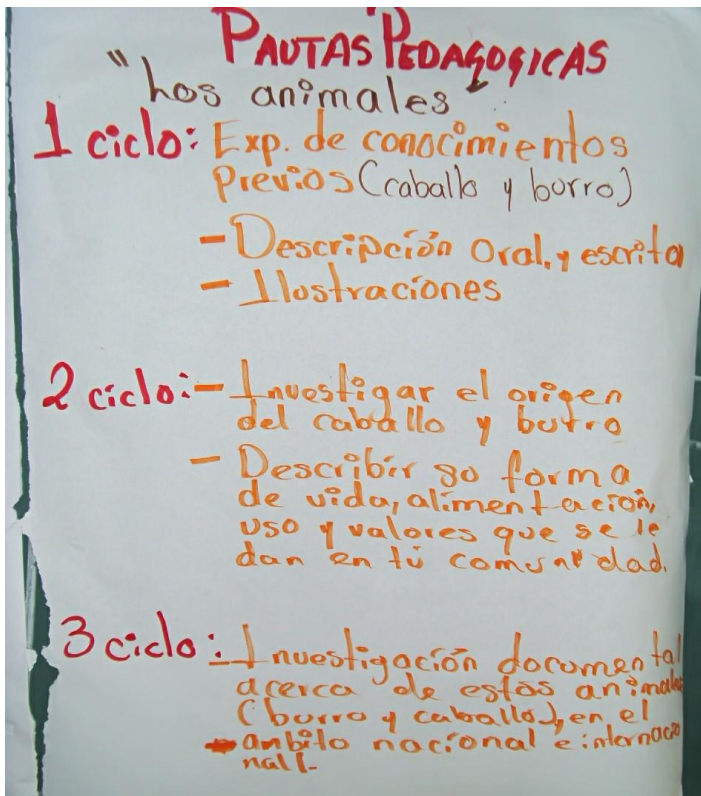 PAUTAS PEDAGOGICAS
"Los animales"
1 ciclo: Exp. de conocimientos
Previos (caballo y burro)
- Descripción Oral, y escrita
- Ilostraciones
2 ciclo: - Investigar el origen
del caballo y burro
- Describir so forma
de vida, alimentación,
uso y valores que se le
dan en tú comunidad.
3 ciclo: - Investigación documental
acerca de estos animales
(burro y caballo), en el
ambito nacional e internacio
nall-